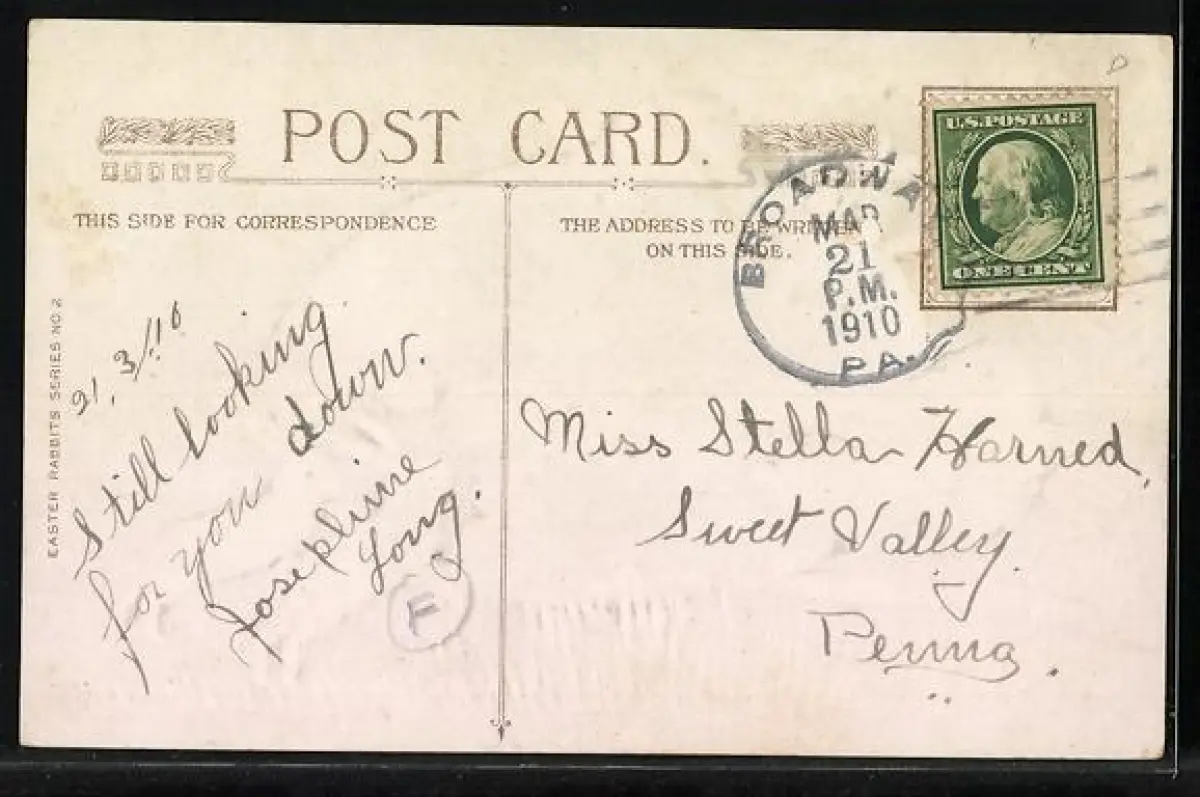 D
POST CARD.
THIS SIDE FOR CORRESPONDENCE
THE ADDRESS TO BE WRITTEN
ON THIS SIDE.
U.S. POSTAGE
ONE CENT
BROADWAY
MAR
21
P.M.
1910
PA.
EASTER RABBITS SERIES NO. 2
21, 3/10
Still looking
for you down.
Josephine
Long.
F
Miss Stella Harned,
Sweet Valley.
Penna.